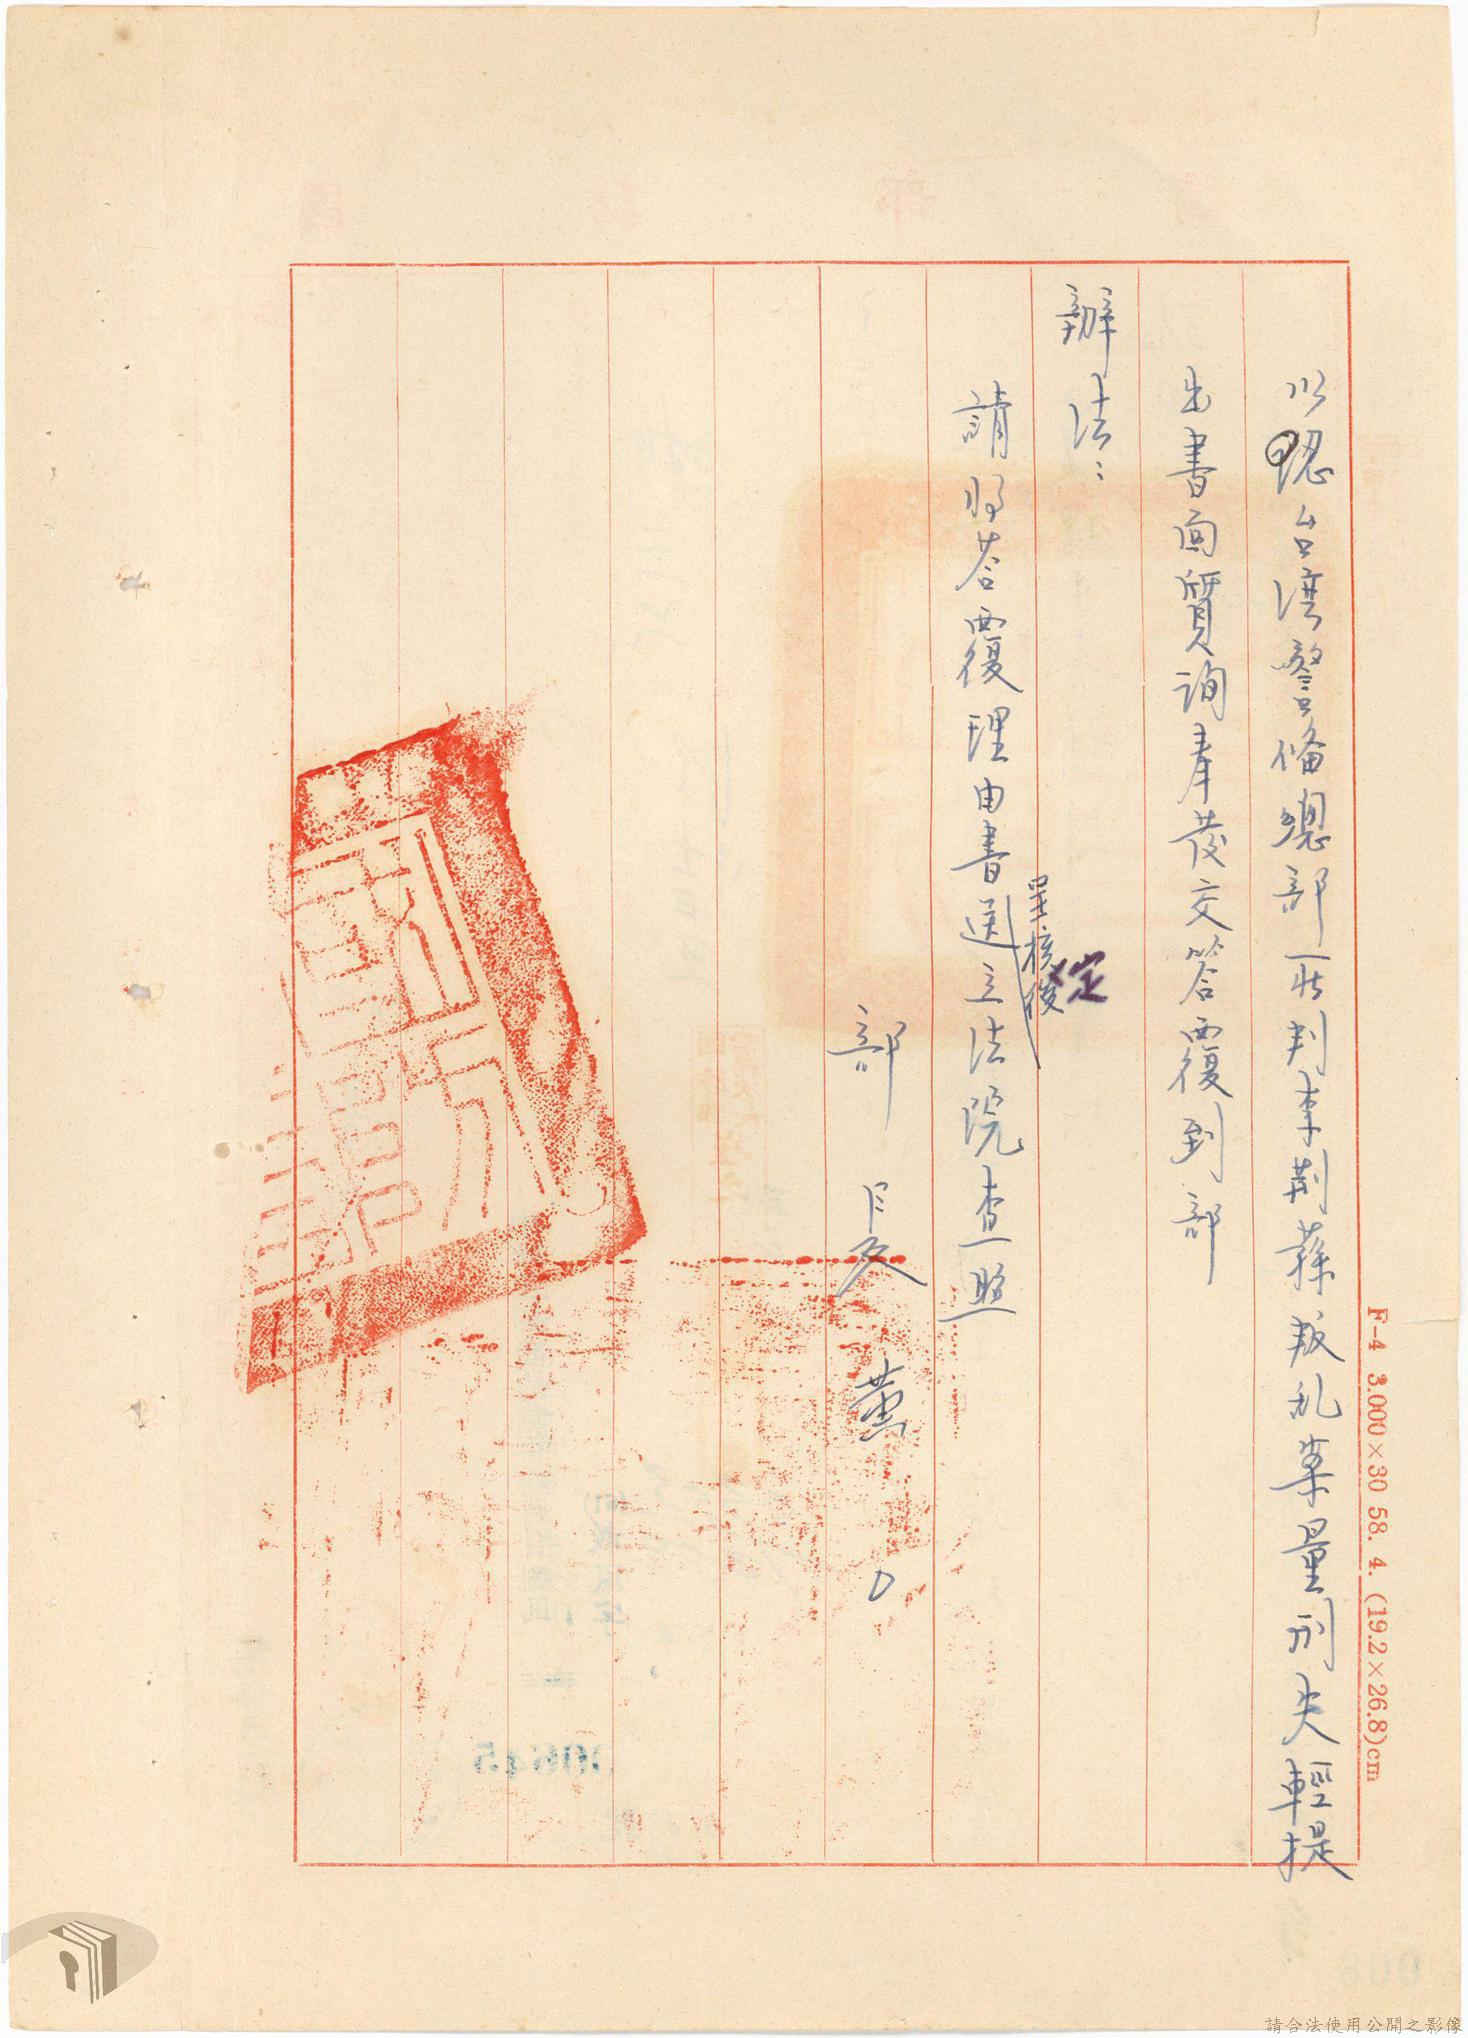 以認台湾警俻總部所判李荆蓀叛乱案量刑失輕提
出書面質詢奉發交答覆到部
辦法：
請將荅覆理由書送立法院查照
呈核後
定
部長 黃
F-4 3.000×30 58. 4. (19.2×26.8)cm
請合法使用公開之影像